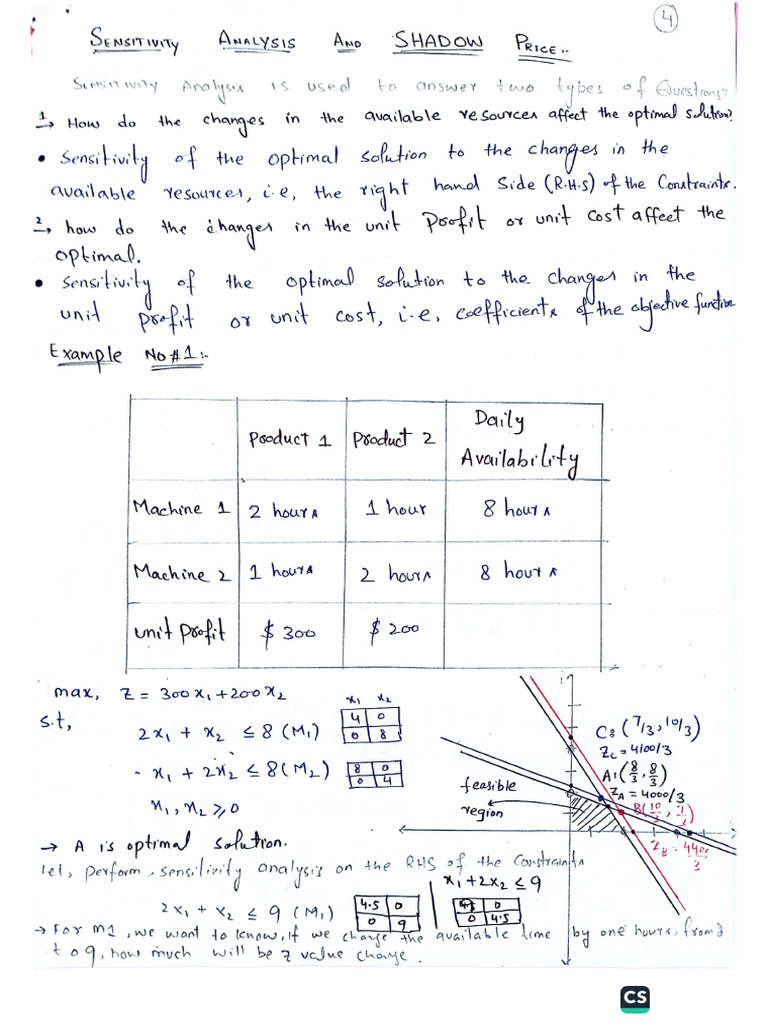 4
SENSITIVITY ANALYSIS AND SHADOW PRICE:-
Sensitivity Analysis is used to answer two types of Questions?
1→ How do the changes in the available resources affect the optimal solution?
• Sensitivity of the optimal solution to the changes in the
available resources, i.e, the right hand side (R.H.S) of the Constraints.
2→ how do the changes in the unit Profit or unit cost affect the
optimal.
• Sensitivity of the optimal solution to the changes in the
unit profit or unit cost, i.e, coefficients of the objective function.
Example No#1:-
Product 1 Product 2 Daily Availability
Machine 1 2 hours 1 hour 8 hours
Machine 2 1 hours 2 hours 8 hours
unit profit $ 300 $ 200
max, Z = 300x₁+200x₂
s.t,
x₁ x₂
2x₁ + x₂ ≤ 8 (M₁)
4 0
0 8
x₁ + 2x₂ ≤ 8 (M₂)
8 0
0 4
x₁, x₂ ≥ 0
feasible
region
C: (7/3, 10/3)
Z_C = 4100/3
A: (8/3, 8/3)
Z_A = 4000/3
B(10/3,
Z_B = 4400/3
→ A is optimal solution.
let, perform sensitivity analysis on the RHS of the Constraints
2x₁ + x₂ ≤ 9 (M₁)
4.5 0
0 9
x₁+2x₂ ≤ 9
0
0 4.5
→ For M1, we want to know, if we change the available time by one hours, from
to 9, how much will be z value change.
CS